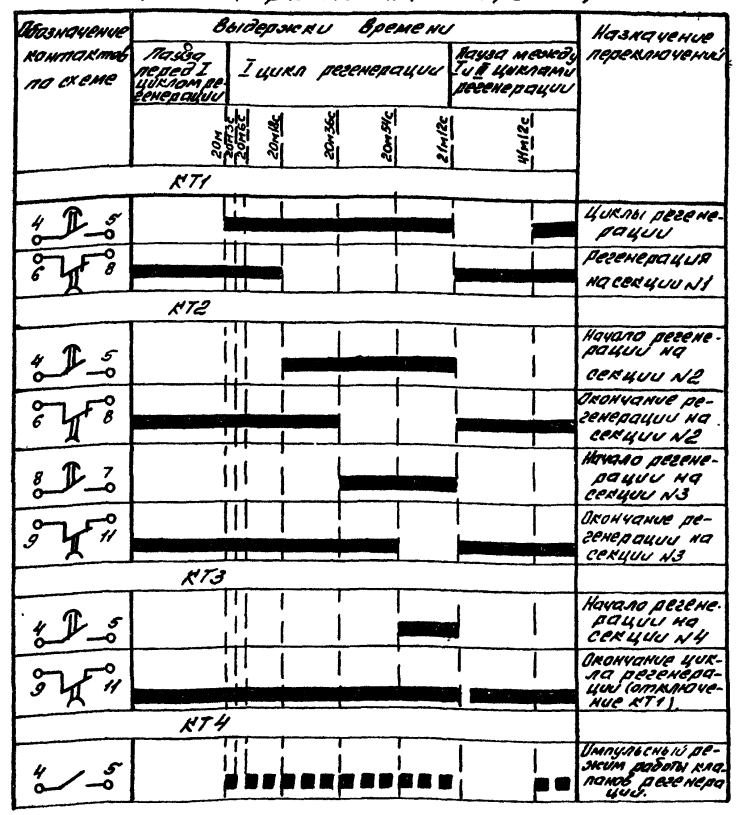 Обозначение контактов по схеме
Выдержки времени
Назначение переключений
Пауза перед I циклом регенерации
I цикл регенерации
Пауза между I и II циклами регенерации
20м
20м3с
20м6с
20м18с
20м36с
20м54с
21м12с
41м12с
КТ1
4 5
Циклы регенерации
6 8
Регенерация на секции N1
КТ2
4 5
Начало регенерации на секции N2
6 8
Окончание регенерации на секции N2
8 7
Начало регенерации на секции N3
9 11
Окончание регенерации на секции N3
КТ3
4 5
Начало регенерации на секции N4
9 11
Окончание цикла регенерации (отключение КТ1)
КТ4
4 5
Импульсный режим работы клапанов регенерации.